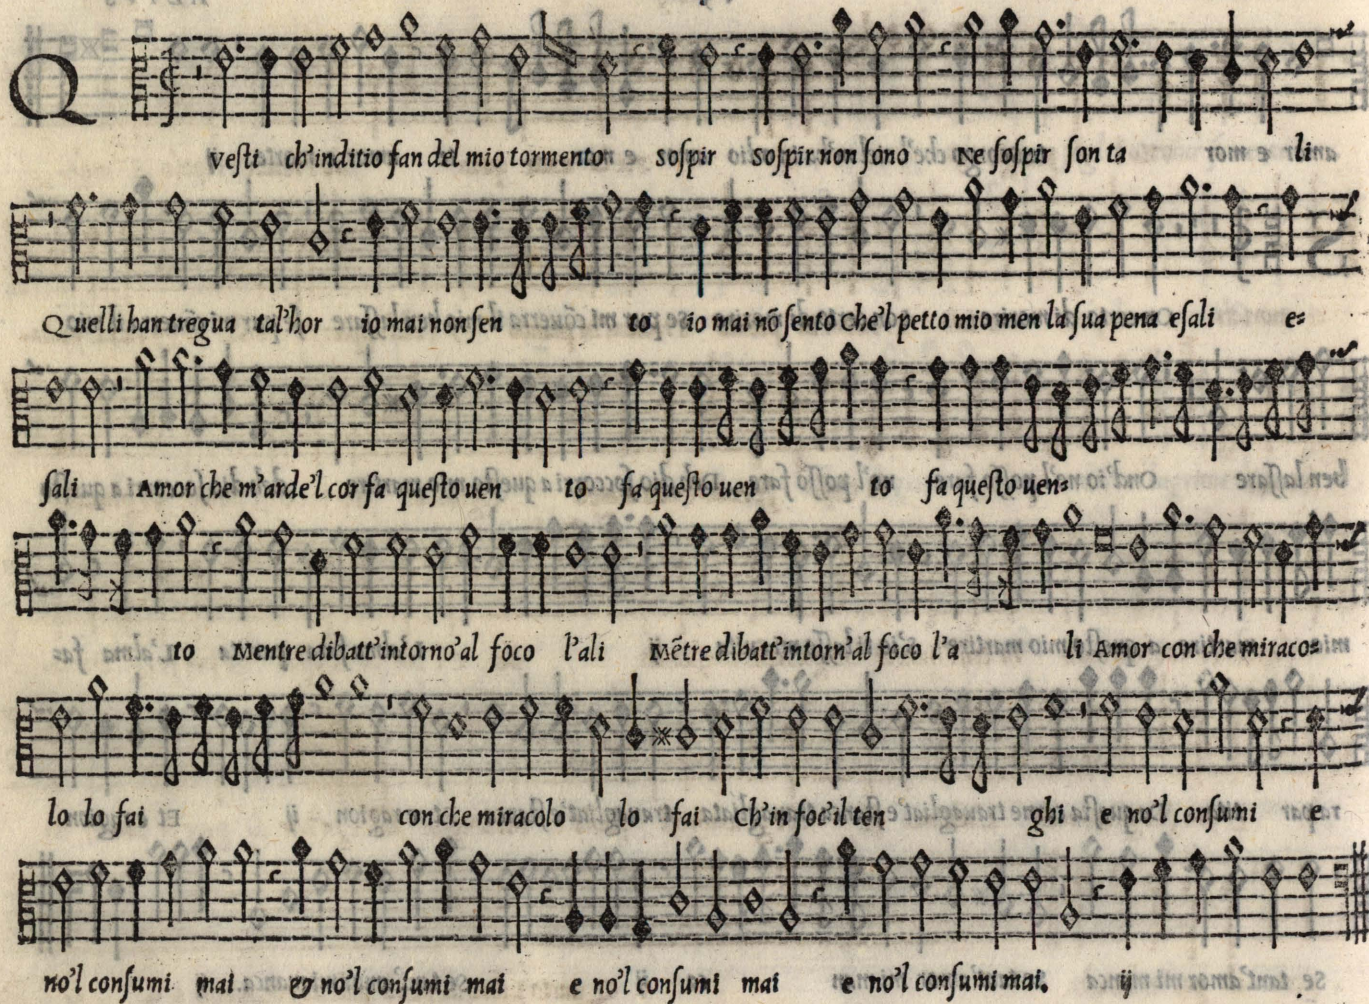 Q
Vesti ch'inditio fan del mio tormento sospir sospir non sono Ne sospir son ta li
Quelli han tregua tal'hor io mai non sen to io mai nõ sento Che'l petto mio men la sua pena esali e=
sali Amor che m'arde'l cor fa questo uen to fa questo uen to fa questo uen=
to Mentre dibatt'intorno'al foco l'ali Mẽtre dibatt'intorn'al foco l'a li Amor con che miraco=
lo lo fai con che miracolo lo fai Ch'in foc'il ten ghi e no'l consumi e
no'l consumi mai & no'l consumi mai e no'l consumi mai e no'l consumi mai. ij